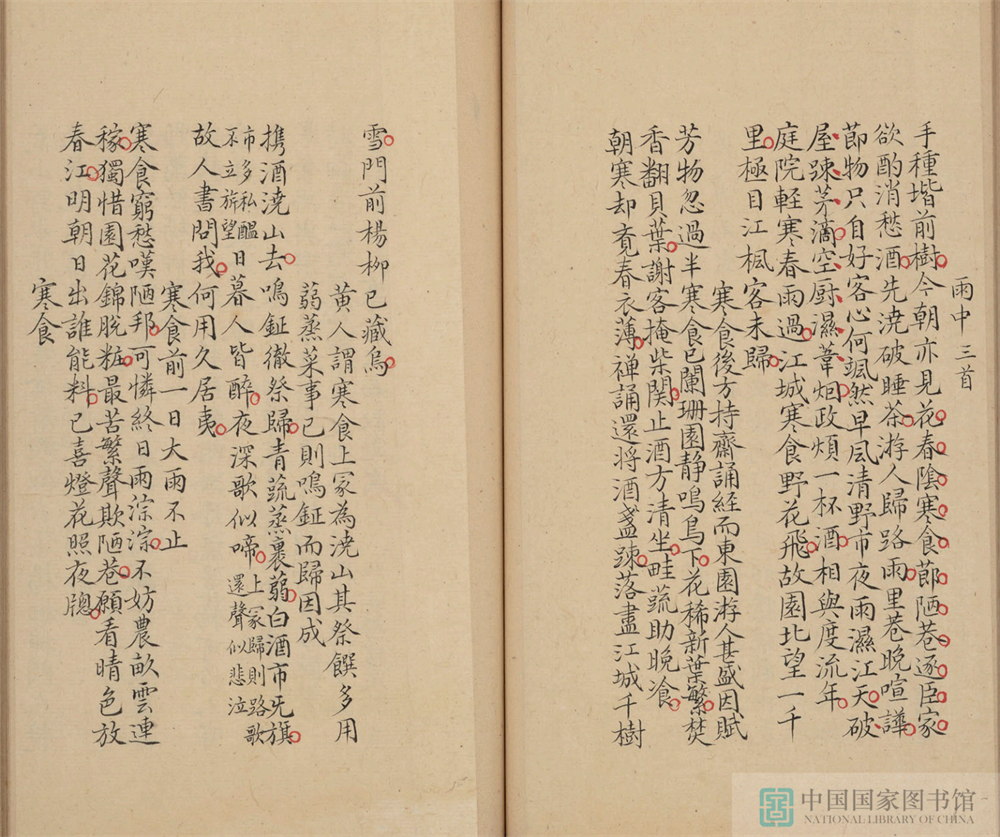 雨中 三首
手種堦前樹今朝亦見花春陰寒食節陋巷逐臣家
欲酌消愁酒先澆破睡茶游人歸路雨里巷晚喧譁
節物只自好客心何颯然早風清野市夜雨濕江天破
屋疎茅滴空厨濕葦烟政煩一杯酒相與度流年
庭院輕寒春雨過江城寒食野花飛故園北望一千
里極目江楓客未歸
寒食後方持齋誦經而東園游人甚盛因賦
芳物忽過半寒食已闌珊園静鳴鳥下花稀新葉繁焚
香翻貝葉謝客掩柴関止酒方清坐畦蔬助晚飡
朝寒却覔春衣薄禅誦還将酒盞踈落盡江城千樹
雪門前楊柳已藏烏
黄人謂寒食上冢為澆山其祭饌多用
蒻蒸菜事已則鳴鉦而歸因成
携酒澆山去鳴鉦徹祭歸青蔬蒸裹蒻白酒市旡旗
市多私醖
不立旂望
日暮人皆醉夜深歌似啼
上冢歸則路歌
還聲似悲泣
故人書問我何用久居夷
寒食前一日大雨不止
寒食窮愁嘆陋邦可憐終日雨淙淙不妨農畝雲連
稼獨惜園花錦脫粧最苦繁聲欺陋巷願看晴色放
春江明朝日出誰能料已喜燈花照夜牕
寒食
中国国家图书馆
NATIONAL LIBRARY OF CHINA